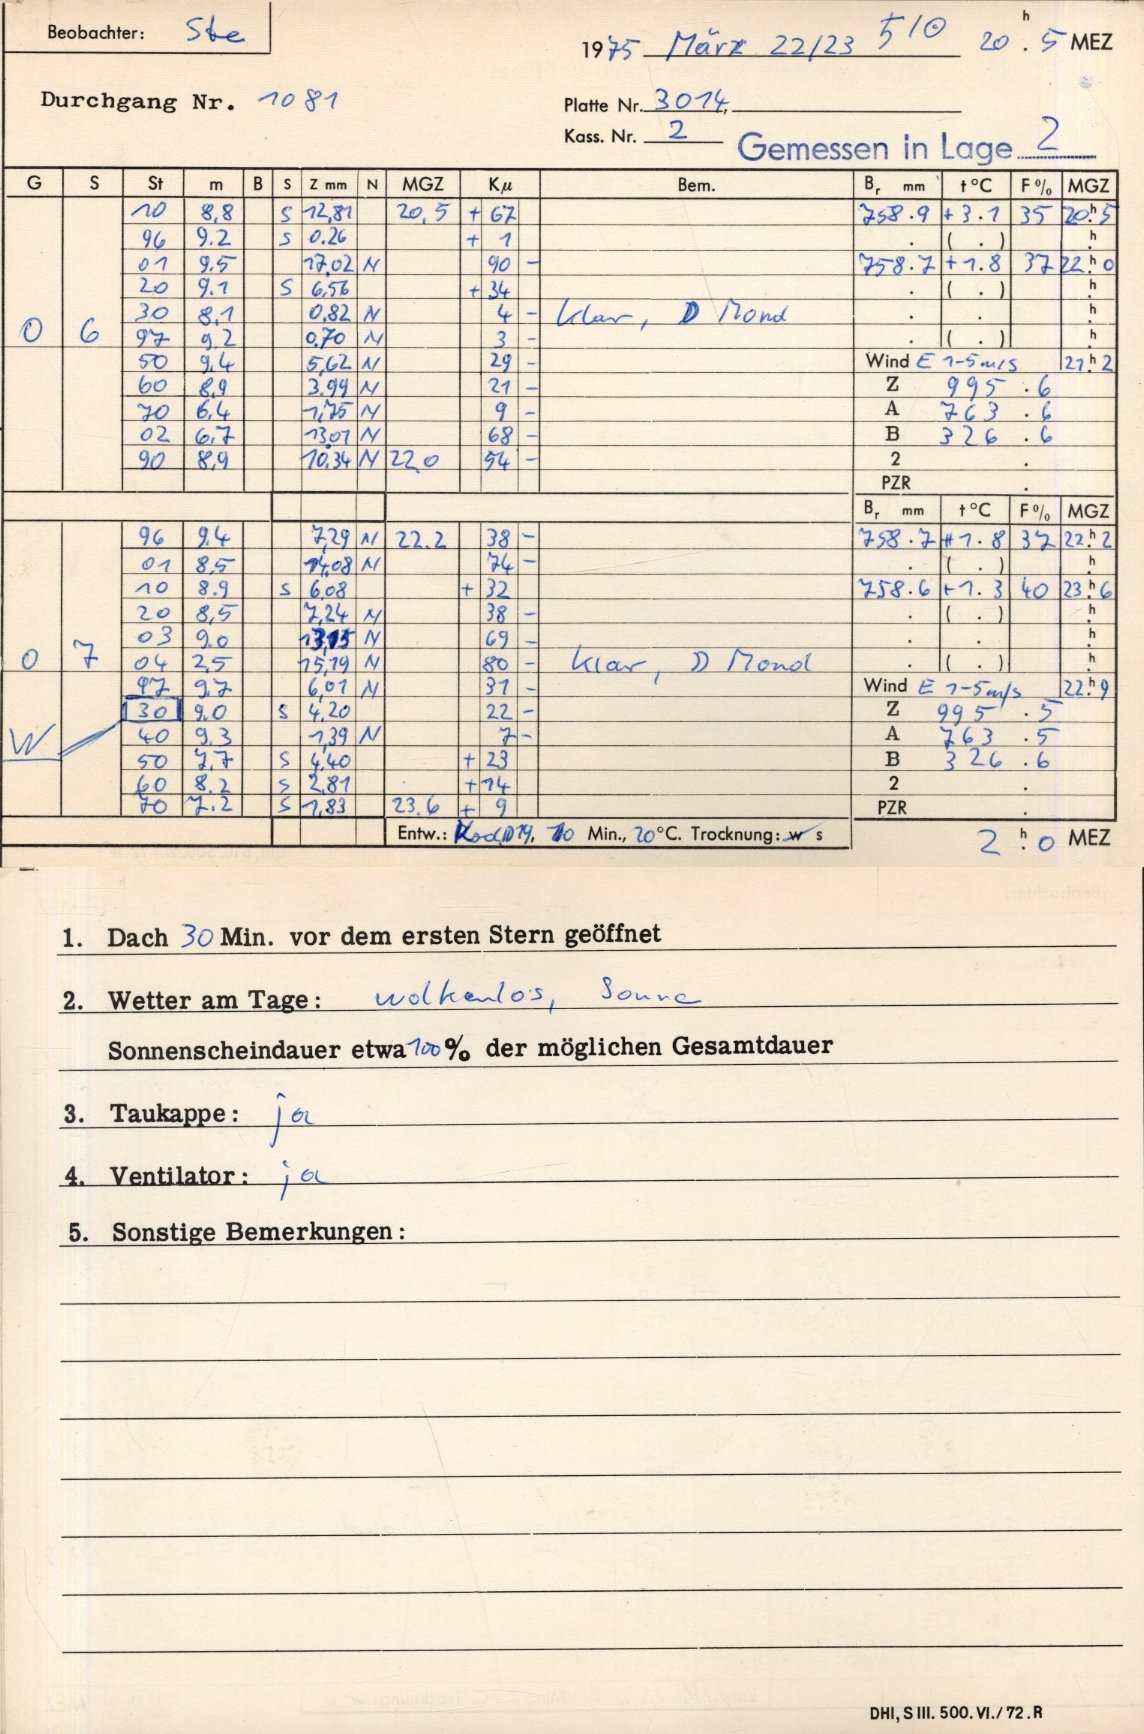 Beobachter: Ste
1975 März 22/23 510 20 h . 5 MEZ
Durchgang Nr. 1081
Platte Nr. 3014,
Kass. Nr. 2 Gemessen in Lage 2
G S St m B S Z mm N MGZ Kμ Bem. Br mm t °C F % MGZ
10 8,8 S 12,81 20,5 + 67 758.9 +3.1 35 20h.5
96 9.2 S 0.26 + 1 . ( . ) h.
01 9.5 17,02 N 90 - 758.7 +1.8 37 22h.0
20 9.1 S 6,56 + 34 . ( . ) h.
0 6 30 8,1 0,82 N 4 - Klar, D Mond . . h.
97 9.2 0.70 N 3 - . ( . ) h.
50 9,4 5,62 N 29 - Wind E 1-5 m/s 21h.2
60 8,9 3.99 N 21 - Z 995 . 6
70 6,4 1,75 N 9 - A 763 . 6
02 6,7 13,01 N 68 - B 326 . 6
90 8,9 10.34 N 22,0 54 - 2 .
PZR .
Br mm t °C F % MGZ
96 9.4 7,29 N 22.2 38 - 758.7 +1.8 37 22h.2
01 8,5 14,08 N 74 - . ( . ) h.
10 8.9 S 6,08 + 32 758.6 +1.3 40 23h.6
20 8,5 7,24 N 38 - . ( . ) h.
03 9.0 13,15 N 69 - . . h.
0 7 04 2,5 15,19 N 80 - Klar, D Mond . ( . ) h.
97 9.7 6,01 N 31 - Wind E 1-5 m/s 22h.9
30 9.0 S 4,20 22 - Z 995 . 5
W 40 9.3 1,39 N 7 - A 763 . 5
50 7.7 S 4,40 + 23 B 326 . 6
60 8.2 S 2,81 + 14 2 .
70 7.2 S 1,83 23.6 + 9 PZR .
Entw.: D19, 10 Min., 20 °C. Trocknung: w s 2 h . 0 MEZ
1. Dach 30 Min. vor dem ersten Stern geöffnet
2. Wetter am Tage: wolkenlos, Sonne
Sonnenscheindauer etwa 100 % der möglichen Gesamtdauer
3. Taukappe: ja
4. Ventilator: ja
5. Sonstige Bemerkungen:
DHI, S III. 500. VI./72. R